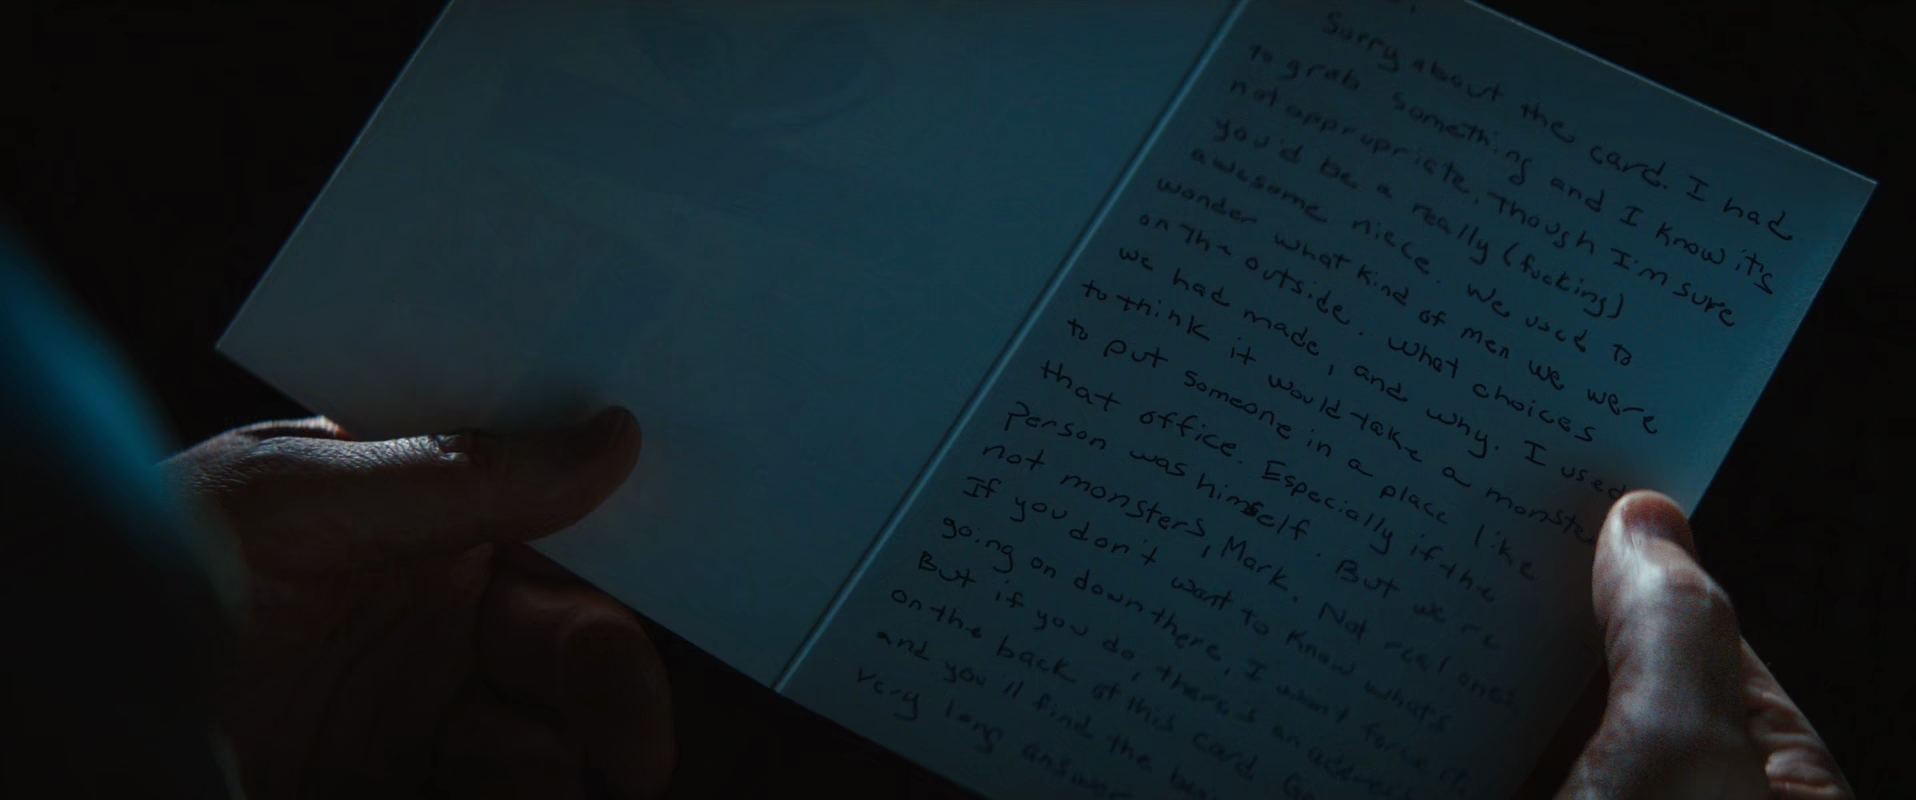 Sorry about the card. I had
to grab something and I know it's
not appropriate. Though I'm sure
you'd be a really (fucking)
awesome niece. We used to
wonder what kind of men we were
on the outside. What choices
we had made, and why. I used
to think it would take a monster
to put someone in a place like
that office. Especially if the
person was himself. But we're
not monsters, Mark. Not real ones.
If you don't want to know what's
going on down there, I won't force it.
But if you do, there's an address
on the back of this card. Go
and you'll find the
very long answer